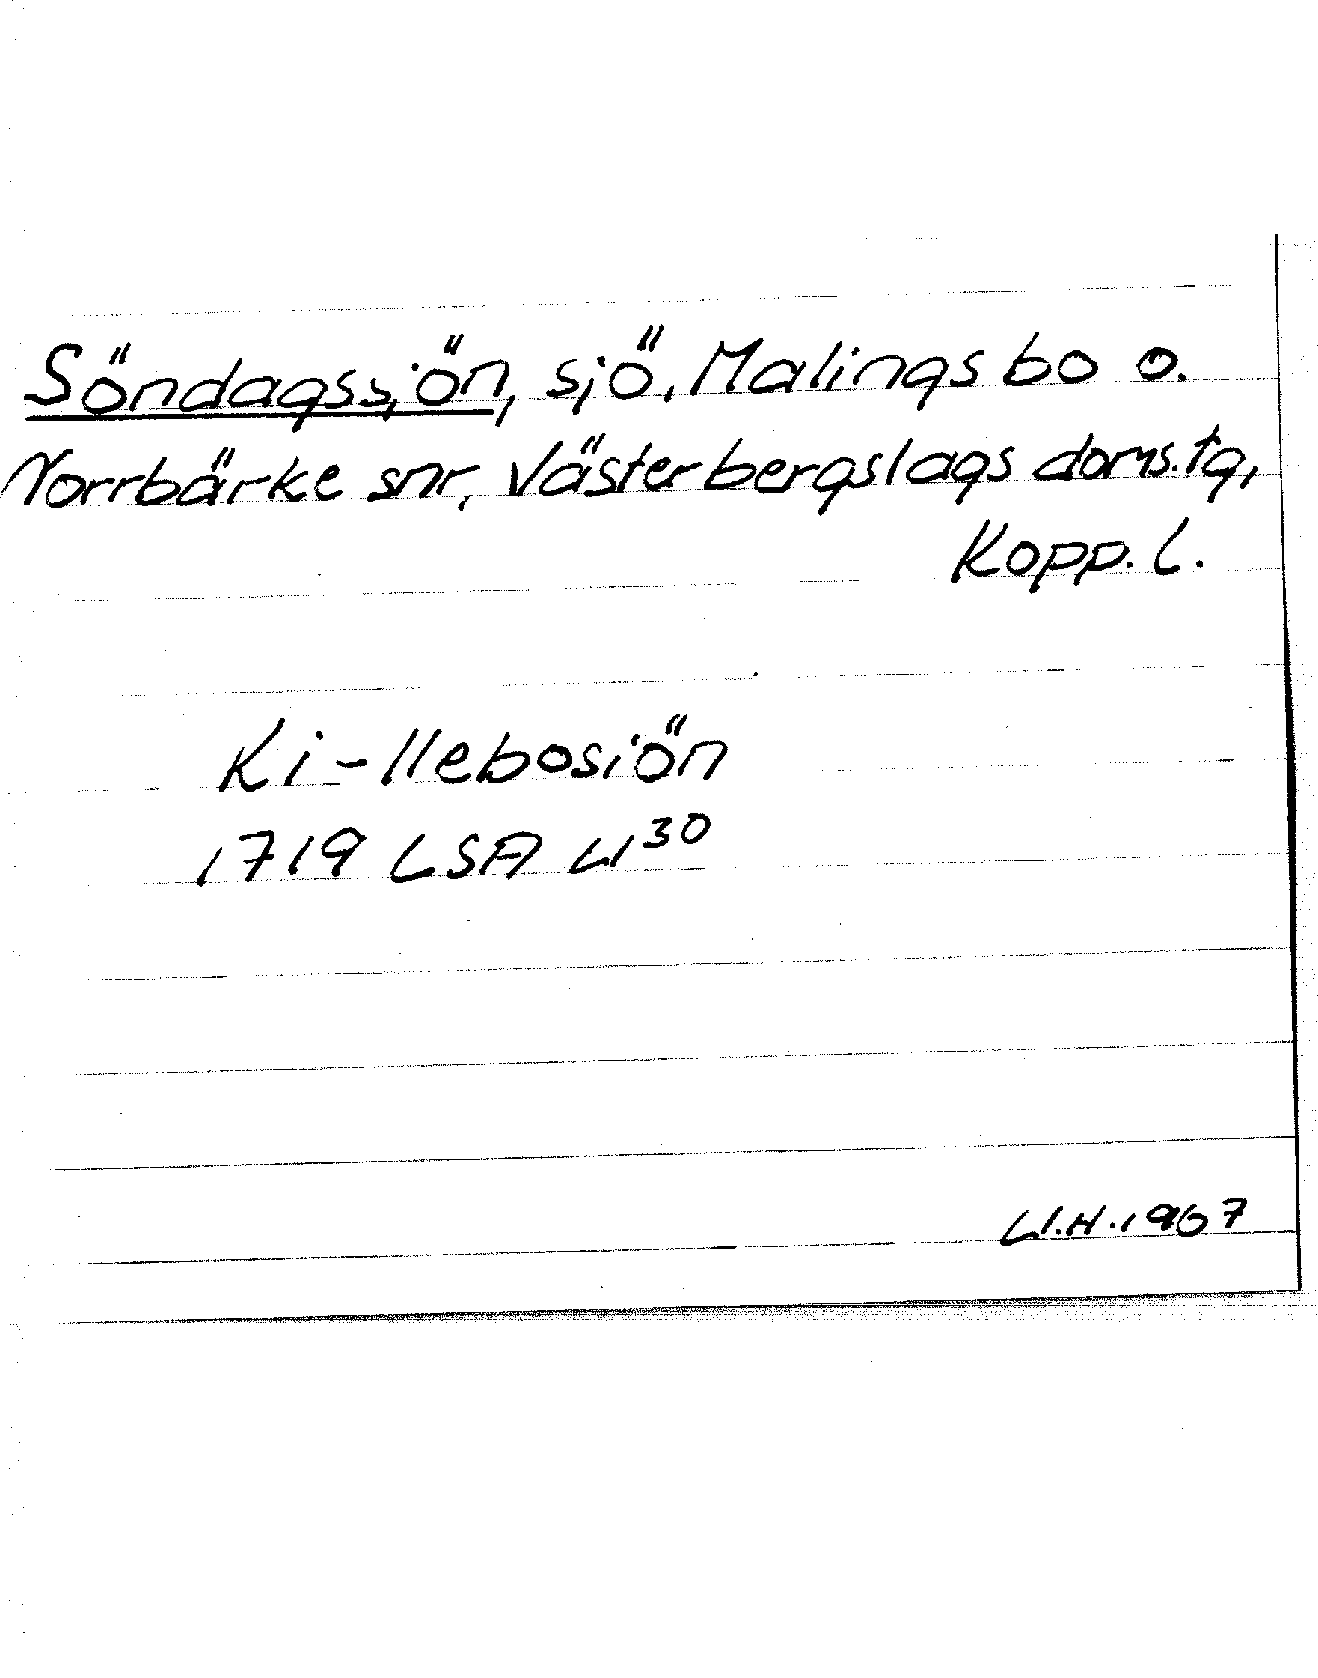 Söndagssjön, sjö, Malingsbo o.
Norrbärke snr, Västerbergslags doms.tg,
Kopp. l.
Ki-llebosiön
1719 LSA U³⁰
U.H. 1967